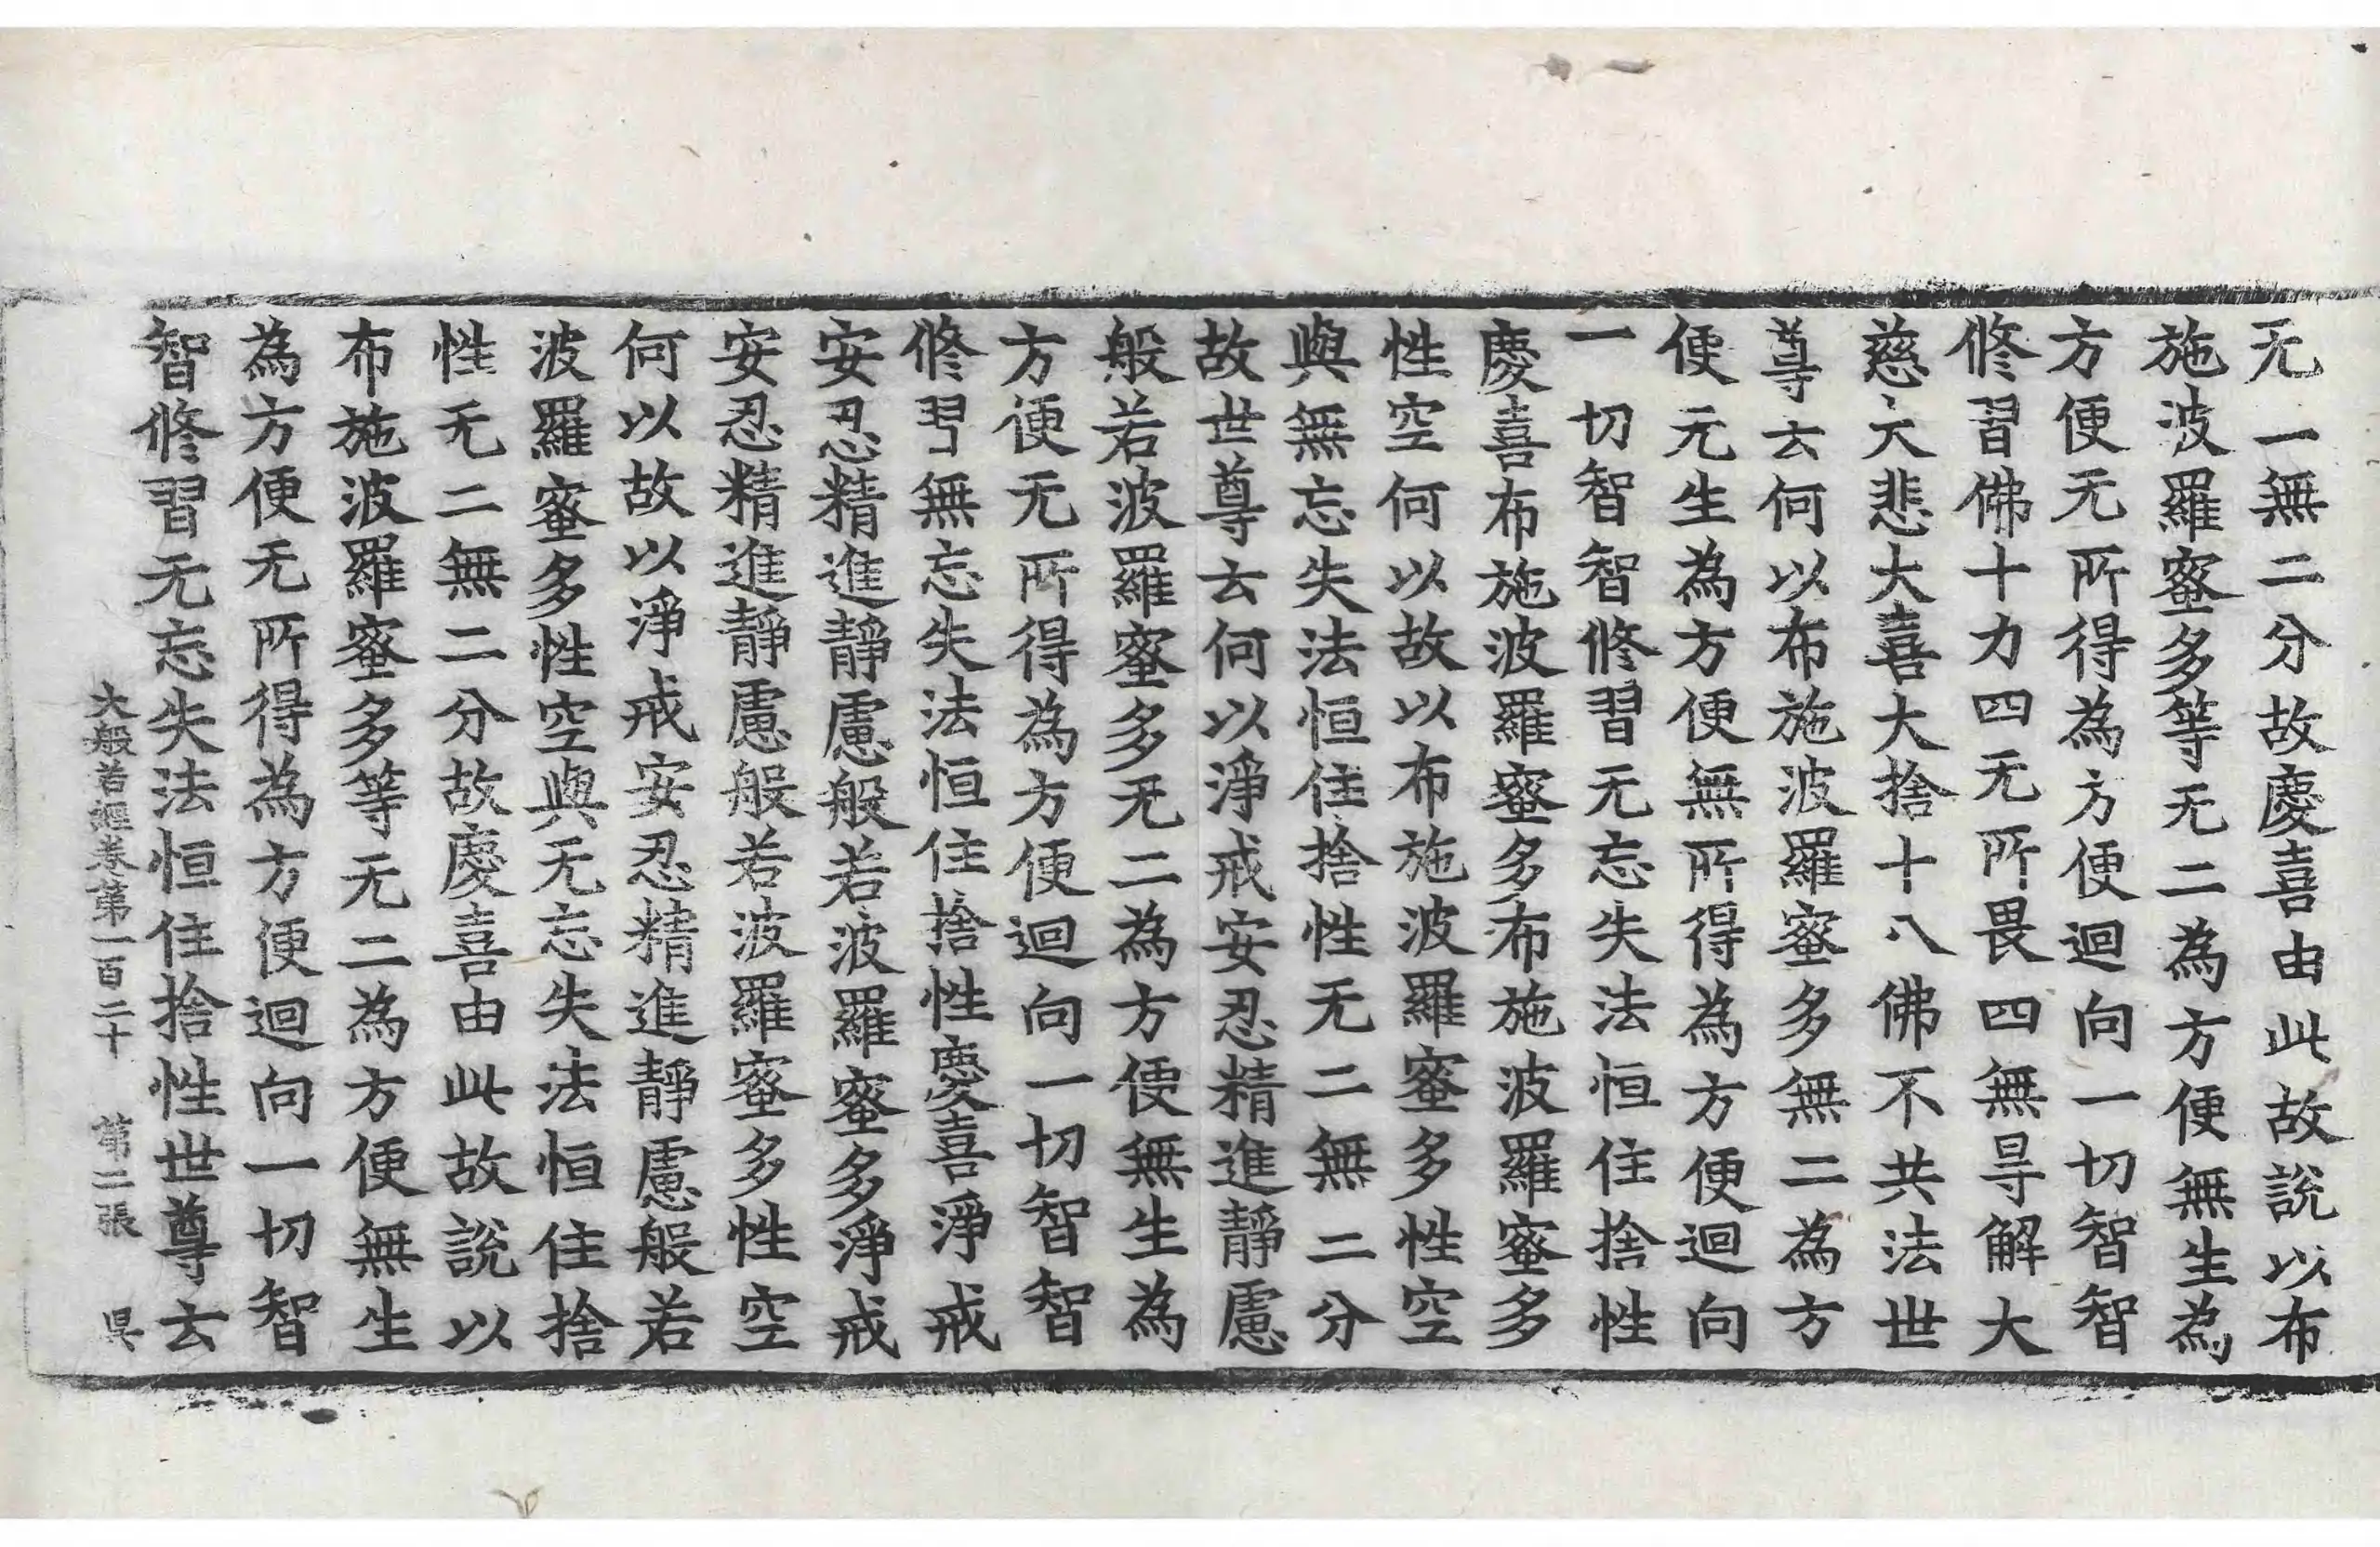 无二無二分故慶喜由此故說以布
施波羅蜜多等无二為方便無生為
方便无所得為方便迴向一切智智
修習佛十力四无所畏四無㝵解大
慈大悲大喜大捨十八佛不共法世
尊云何以布施波羅蜜多無二為方
便无生為方便無所得為方便迴向
一切智智修習无忘失法恒住捨性
慶喜布施波羅蜜多布施波羅蜜多
性空何以故以布施波羅蜜多性空
與無忘失法恒住捨性无二無二分
故世尊云何以淨戒安忍精進靜慮
般若波羅蜜多无二為方便無生為
方便无所得為方便迴向一切智智
修習無忘失法恒住捨性慶喜淨戒
安忍精進靜慮般若波羅蜜多淨戒
安忍精進靜慮般若波羅蜜多性空
何以故以淨戒安忍精進靜慮般若
波羅蜜多性空與无忘失法恒住捨
性无二無二分故慶喜由此故說以
布施波羅蜜多等无二為方便無生
為方便无所得為方便迴向一切智
智修習无忘失法恒住捨性世尊云
大般若經卷第一百二十 第二張 昃